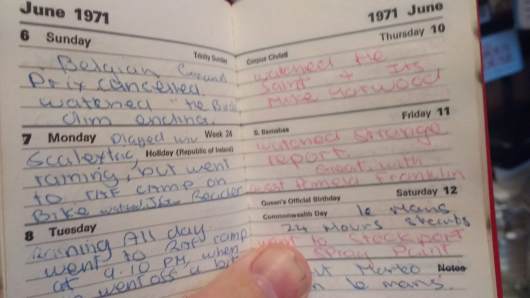 June 1971
6 Sunday
Trinity Sunday
Belgian Grand
Prix cancelled.
watched "The Birds"
dim ending.
7 Monday Week 24
Played with
Scalextric Holiday (Republic of Ireland)
raining, but went
to camp on
Bike
8 Tuesday
Raining All day.
went to camp
at 9.10 PM, when
went off a bit
1971 June
Thursday 10
Corpus Christi
watched The
Saint + Its
Mike Yarwood
Friday 11
S. Barnabas
watched Strange
report.
Great, with
Franklin
Saturday 12
Queen's Official Birthday
Commonwealth Day
le Mans
24 Hours starts
went to Stockport
Spray Paint
Marko
Notes
le mans.